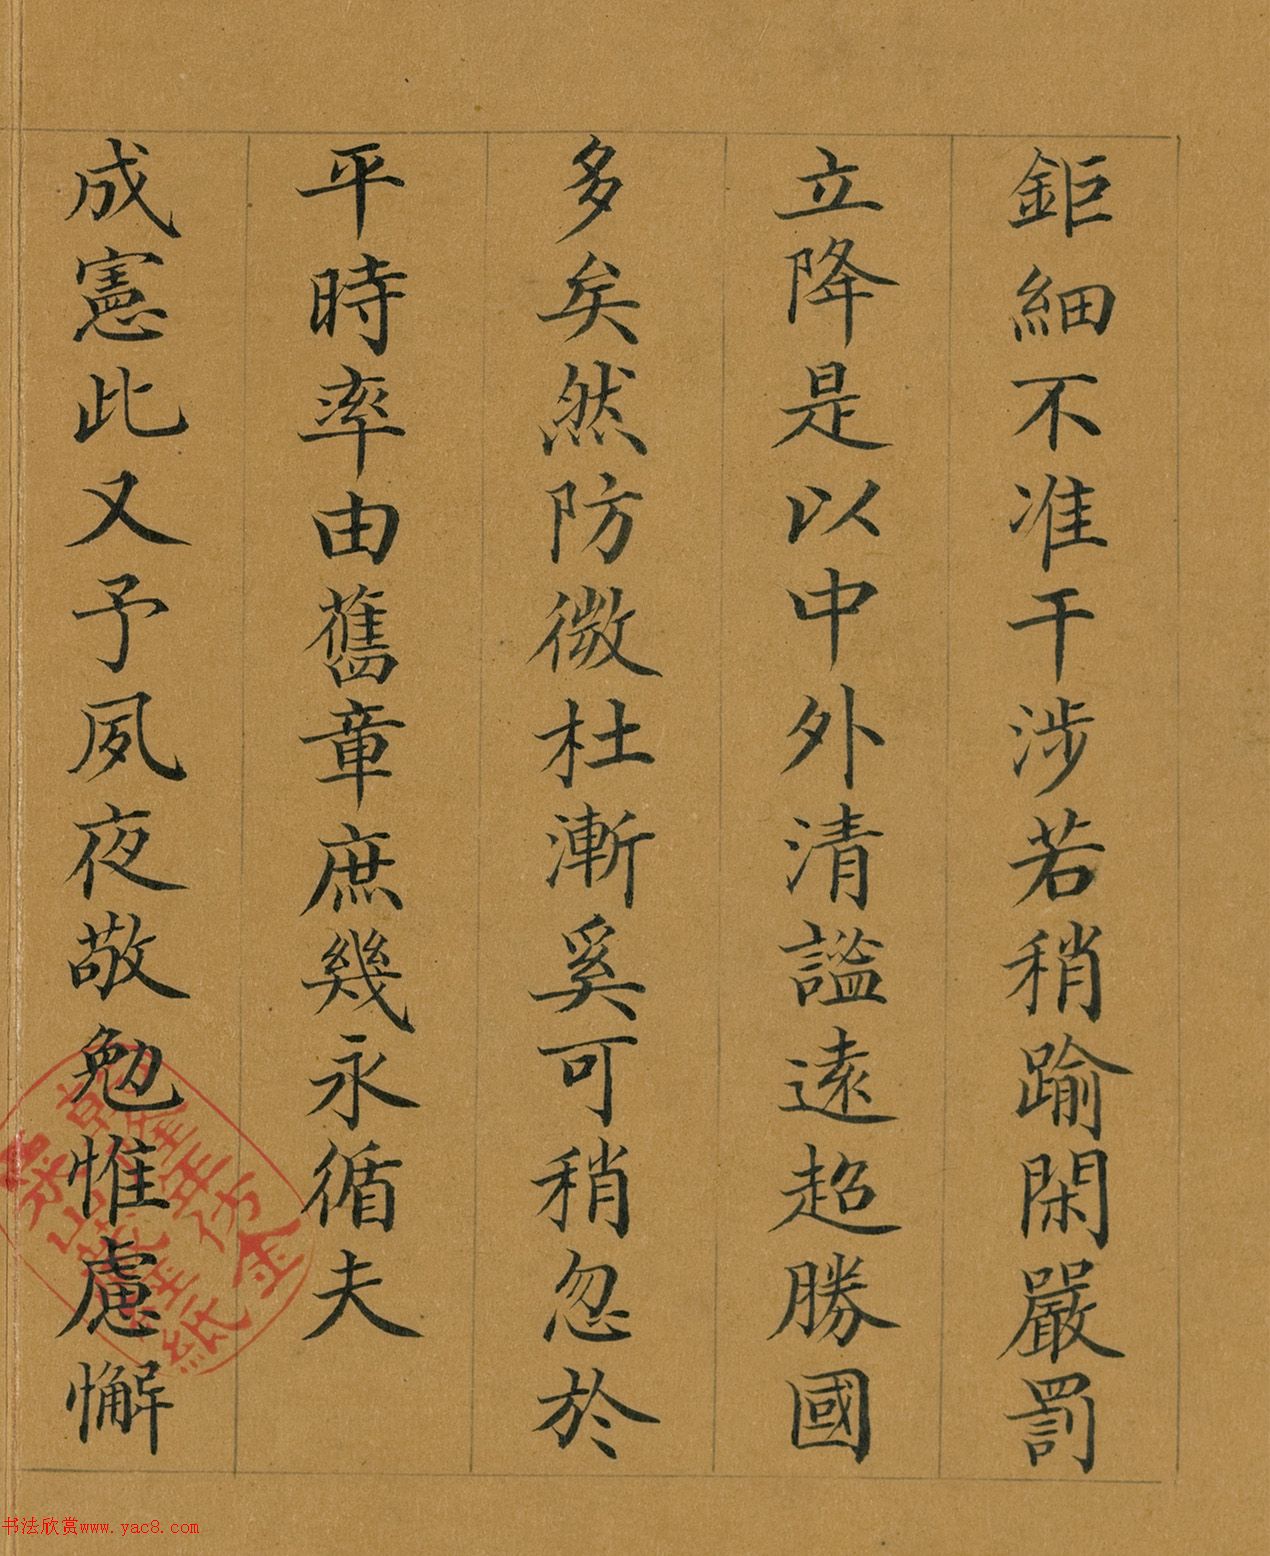 鉅細不准干涉若稍踰閑嚴罰
立降是以中外清謐遠超勝國
多矣然防微杜漸奚可稍忽於
平時率由舊章庶幾永循夫
成憲此又予夙夜敬勉惟慮懈
乾隆年仿金
粟山藏經紙
书法欣赏www.yac8.com